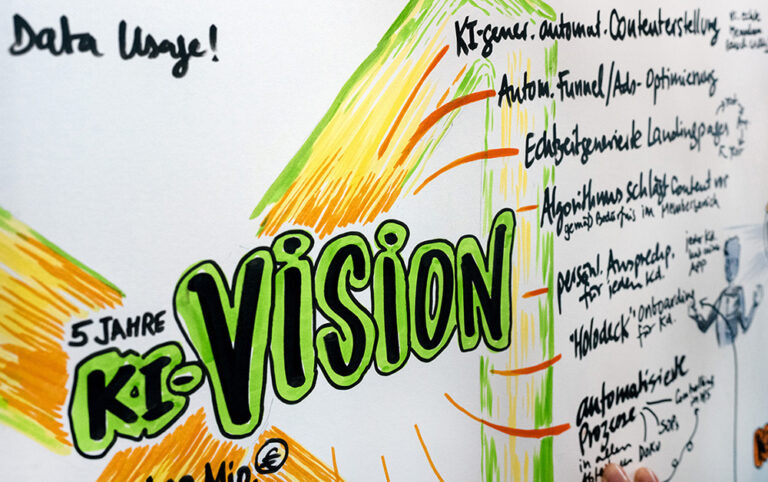 Data Usage!
KI-gener. automat. Contenterstellung
Autom. Funnel/Ads-Optimierung
Echtzeitgenerierte Landingpages
Algorithmus schlägt Content vor
gemäß Bedürfnis im Memberbereich
persönl. Ansprache
für jeden Kd.
jeder Kd.
App
"Holodeck" Onboarding
für Kd.
5 JAHRE
KI-VISION
automatisierte
Prozesse
in allen
SOPs
DOKU
Mio. €